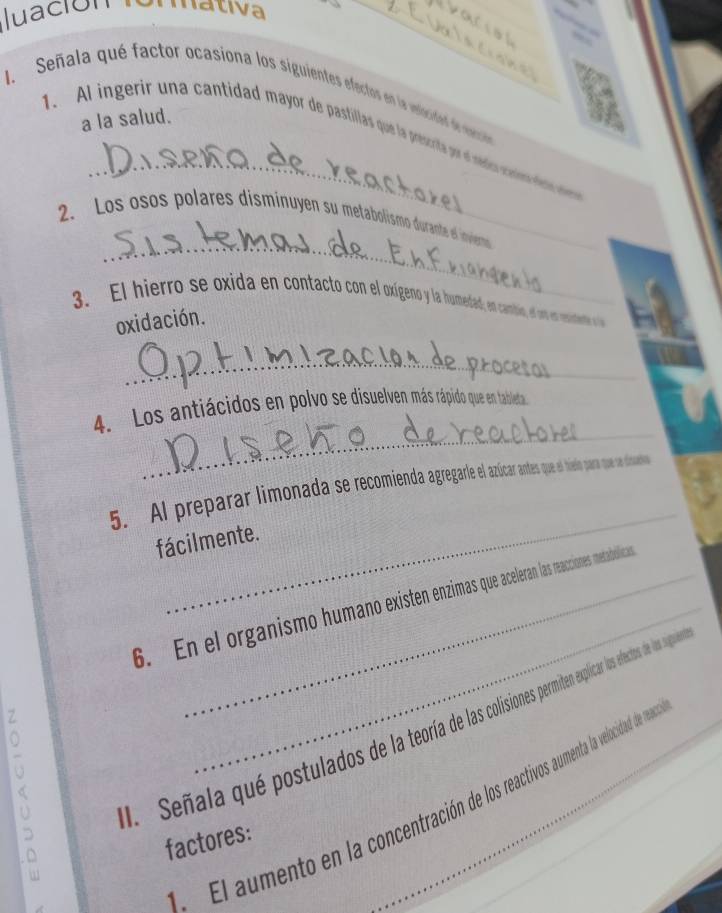 Evaluaciones
I. Señala qué factor ocasiona los siguientes efectos en la velocidad de reacción.
1. Al ingerir una cantidad mayor de pastillas que la prescrita por el médico ocasiona efectos
a la salud.
Diseño de reactores
2. Los osos polares disminuyen su metabolismo durante el invierno.
Sistemas de Enfriamiento
3. El hierro se oxida en contacto con el oxígeno y la humedad, en cambio, el oro es resistente a la
oxidación.
Optimizacion de procesos
4. Los antiácidos en polvo se disuelven más rápido que en tableta.
Diseño de reactores
5. Al preparar limonada se recomienda agregarle el azúcar antes que el hielo para que se disuelva
fácilmente.
6. En el organismo humano existen enzimas que aceleran las reacciones metabólicas.
II. Señala qué postulados de la teoría de las colisiones permiten explicar los efectos de los siguientes
factores:
1. El aumento en la concentración de los reactivos aumenta la velocidad de reacción.
EDUCACIÓN